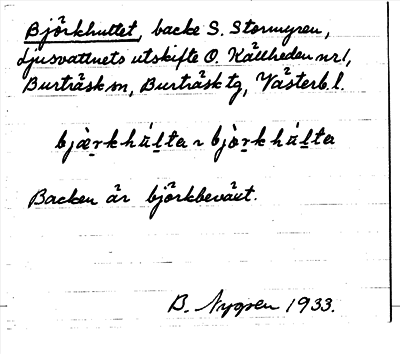 Björkhultet, backe S. Stormyren,
Ljusvattnets utskifte O. Källheden nr 1,
Burträsk sn, Burträsk tg, Västerb. l.
bjæ̀rkhúlta ~ bjòrkhúlta
Backen är björkbeväxt.
B. Nygren 1933.